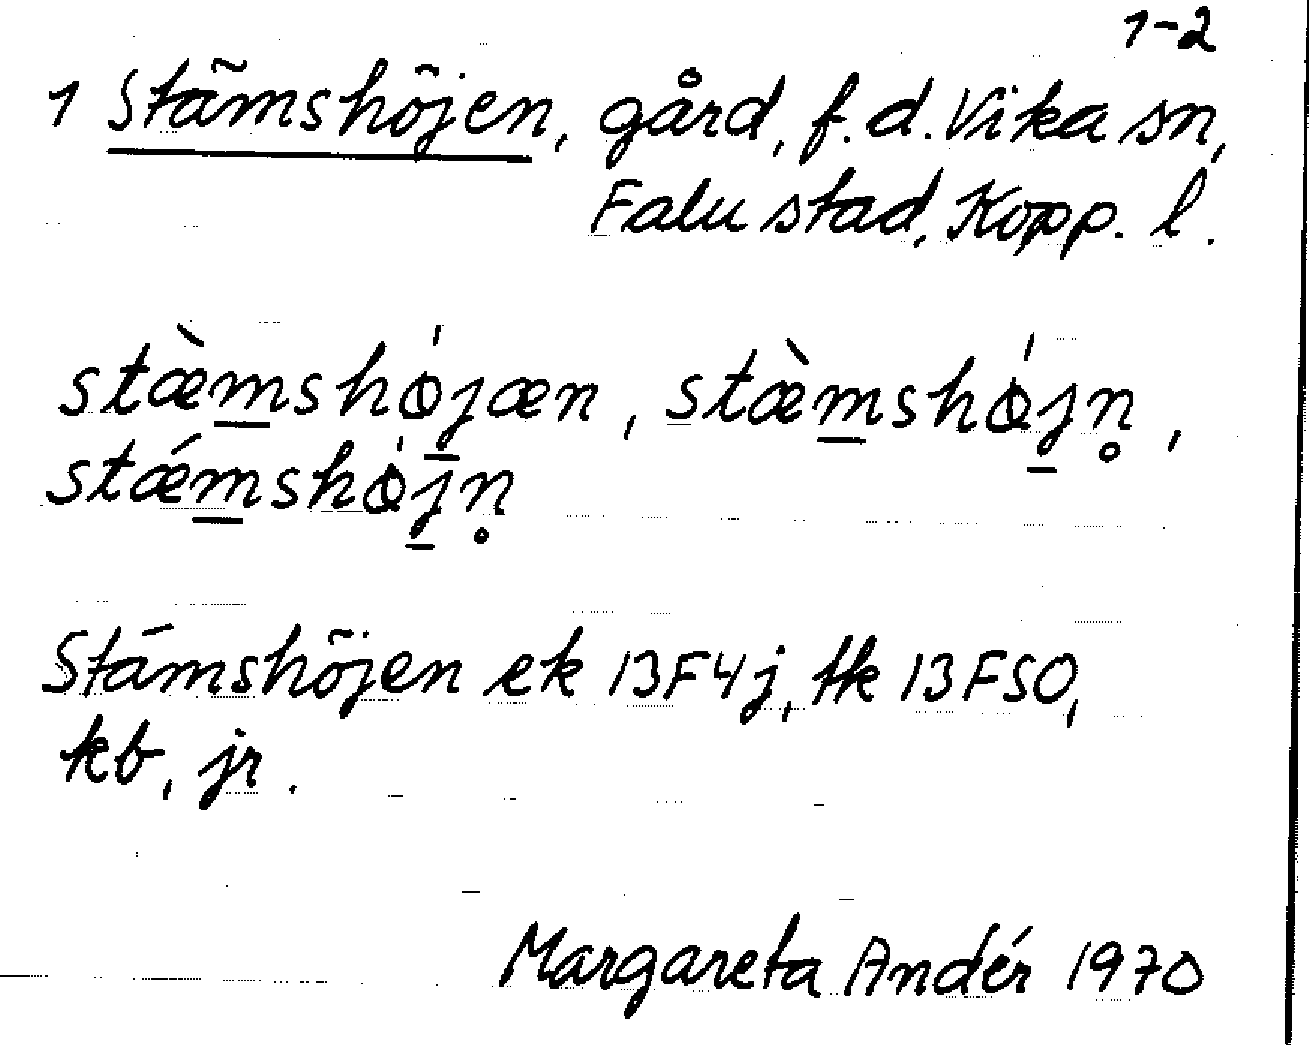 1-2
1 Stämshöjen, gård, f.d. Vika sn,
Falu stad, Kopp. l.
stæ̀m̲shø̍j̲æn, stæ̀m̲shø̍j̲n̥,
stǽm̲shø̍j̲n̥
Stämshöjen ek 13F4j, tk 13FSO,
kb, jr.
Margareta Andér 1970